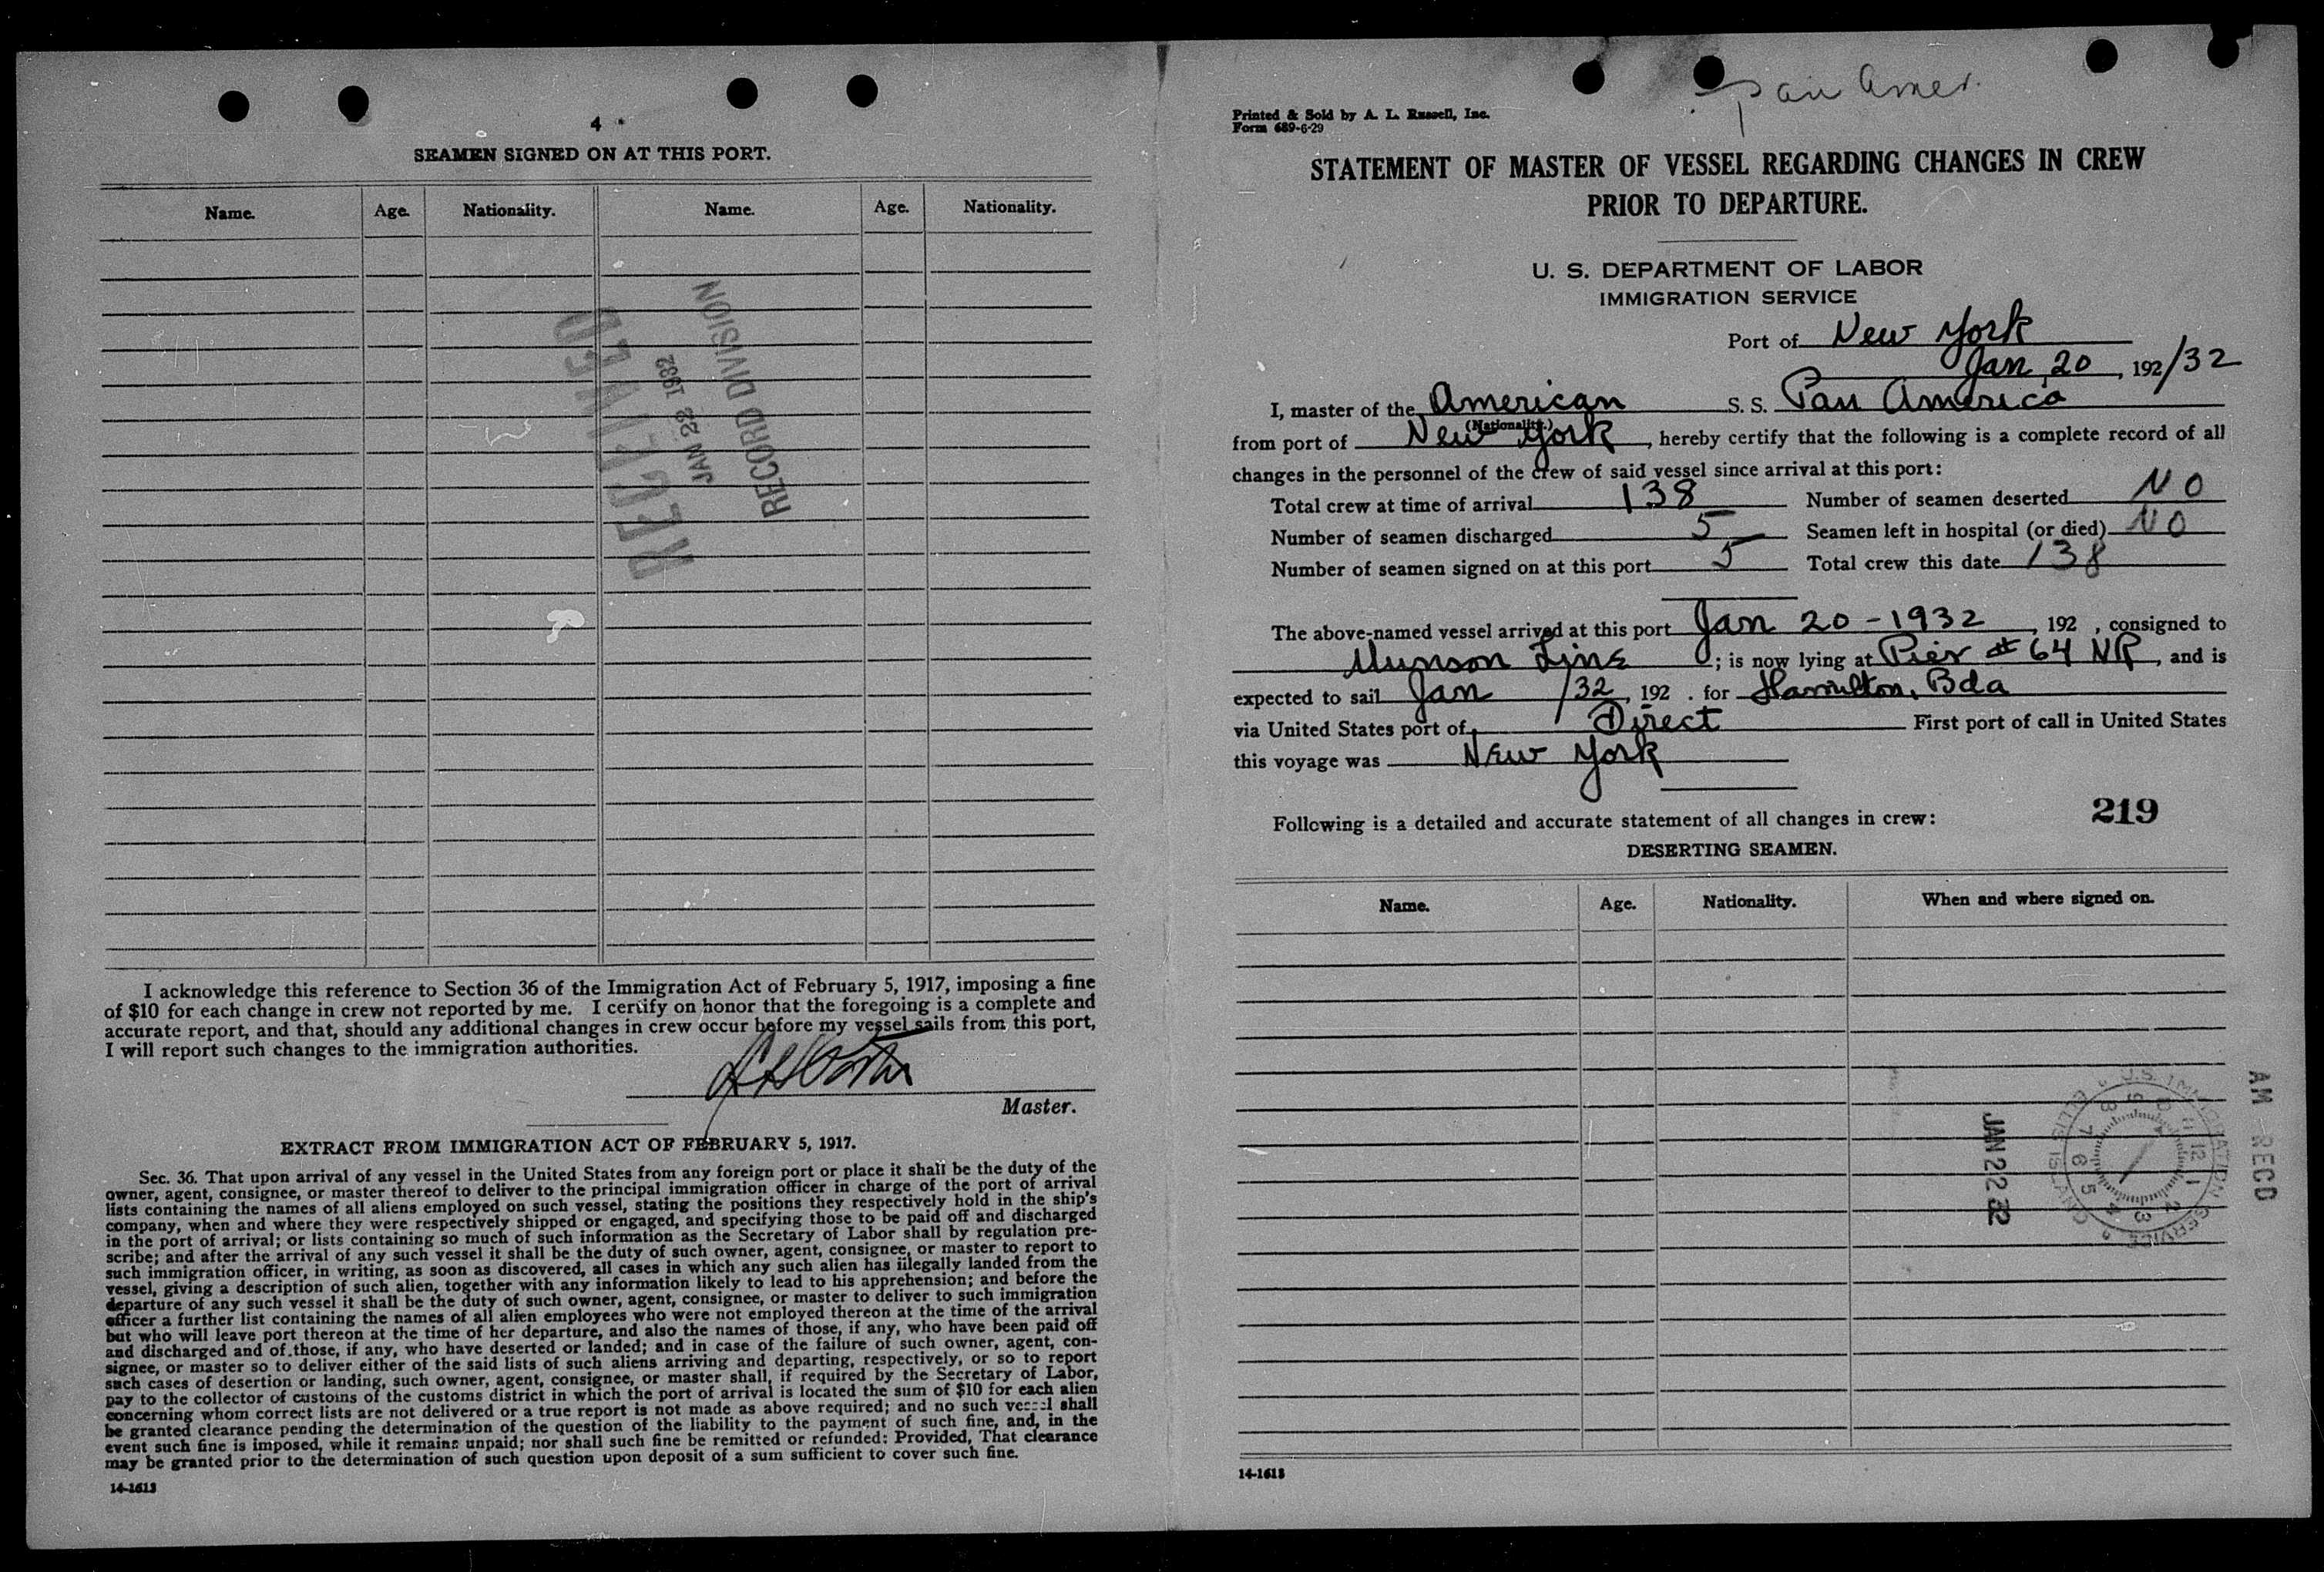 4
SEAMEN SIGNED ON AT THIS PORT.
Name. Age. Nationality. Name. Age. Nationality.
RECEIVED
JAN 22 1932
RECORD DIVISION
I acknowledge this reference to Section 36 of the Immigration Act of February 5, 1917, imposing a fine
of $10 for each change in crew not reported by me. I certify on honor that the foregoing is a complete and
accurate report, and that, should any additional changes in crew occur before my vessel sails from this port,
I will report such changes to the immigration authorities.
Master.
EXTRACT FROM IMMIGRATION ACT OF FEBRUARY 5, 1917.
Sec. 36. That upon arrival of any vessel in the United States from any foreign port or place it shall be the duty of the
owner, agent, consignee, or master thereof to deliver to the principal immigration officer in charge of the port of arrival
lists containing the names of all aliens employed on such vessel, stating the positions they respectively hold in the ship's
company, when and where they were respectively shipped or engaged, and specifying those to be paid off and discharged
in the port of arrival; or lists containing so much of such information as the Secretary of Labor shall by regulation pre-
scribe; and after the arrival of any such vessel it shall be the duty of such owner, agent, consignee, or master to report to
such immigration officer, in writing, as soon as discovered, all cases in which any such alien has illegally landed from the
vessel, giving a description of such alien, together with any information likely to lead to his apprehension; and before the
departure of any such vessel it shall be the duty of such owner, agent, consignee, or master to deliver to such immigration
officer a further list containing the names of all alien employees who were not employed thereon at the time of the arrival
but who will leave port thereon at the time of her departure, and also the names of those, if any, who have been paid off
and discharged and of those, if any, who have deserted or landed; and in case of the failure of such owner, agent, con-
signee, or master so to deliver either of the said lists of such aliens arriving and departing, respectively, or so to report
such cases of desertion or landing, such owner, agent, consignee, or master shall, if required by the Secretary of Labor,
pay to the collector of customs of the customs district in which the port of arrival is located the sum of $10 for each alien
concerning whom correct lists are not delivered or a true report is not made as above required; and no such vessel shall
be granted clearance pending the determination of the question of the liability to the payment of such fine, and, in the
event such fine is imposed, while it remains unpaid; nor shall such fine be remitted or refunded: Provided, That clearance
may be granted prior to the determination of such question upon deposit of a sum sufficient to cover such fine.
14-1613
Pan Amer.
Printed & Sold by A. L. Russell, Inc.
Form 689-6-29
STATEMENT OF MASTER OF VESSEL REGARDING CHANGES IN CREW
PRIOR TO DEPARTURE.
U. S. DEPARTMENT OF LABOR
IMMIGRATION SERVICE
Port of New York
Jan 20, 192/32
I, master of the American S. S. Pan America
(Nationality.)
from port of New York, hereby certify that the following is a complete record of all
changes in the personnel of the crew of said vessel since arrival at this port:
Total crew at time of arrival 138 Number of seamen deserted NO
Number of seamen discharged 5 Seamen left in hospital (or died) NO
Number of seamen signed on at this port 5 Total crew this date 138
The above-named vessel arrived at this port Jan 20-1932, 192 , consigned to
Munson Line; is now lying at Pier # 64 NR, and is
expected to sail Jan /32, 192 . for Hamilton, Bda
via United States port of Direct First port of call in United States
this voyage was New York
219
Following is a detailed and accurate statement of all changes in crew:
DESERTING SEAMEN.
Name. Age. Nationality. When and where signed on.
JAN 22 32
U.S. IMMIGRATION SERVICE
ELLIS ISLAND
12 1 2 3 4 5 6 7 8 9
AM RECD
14-1613